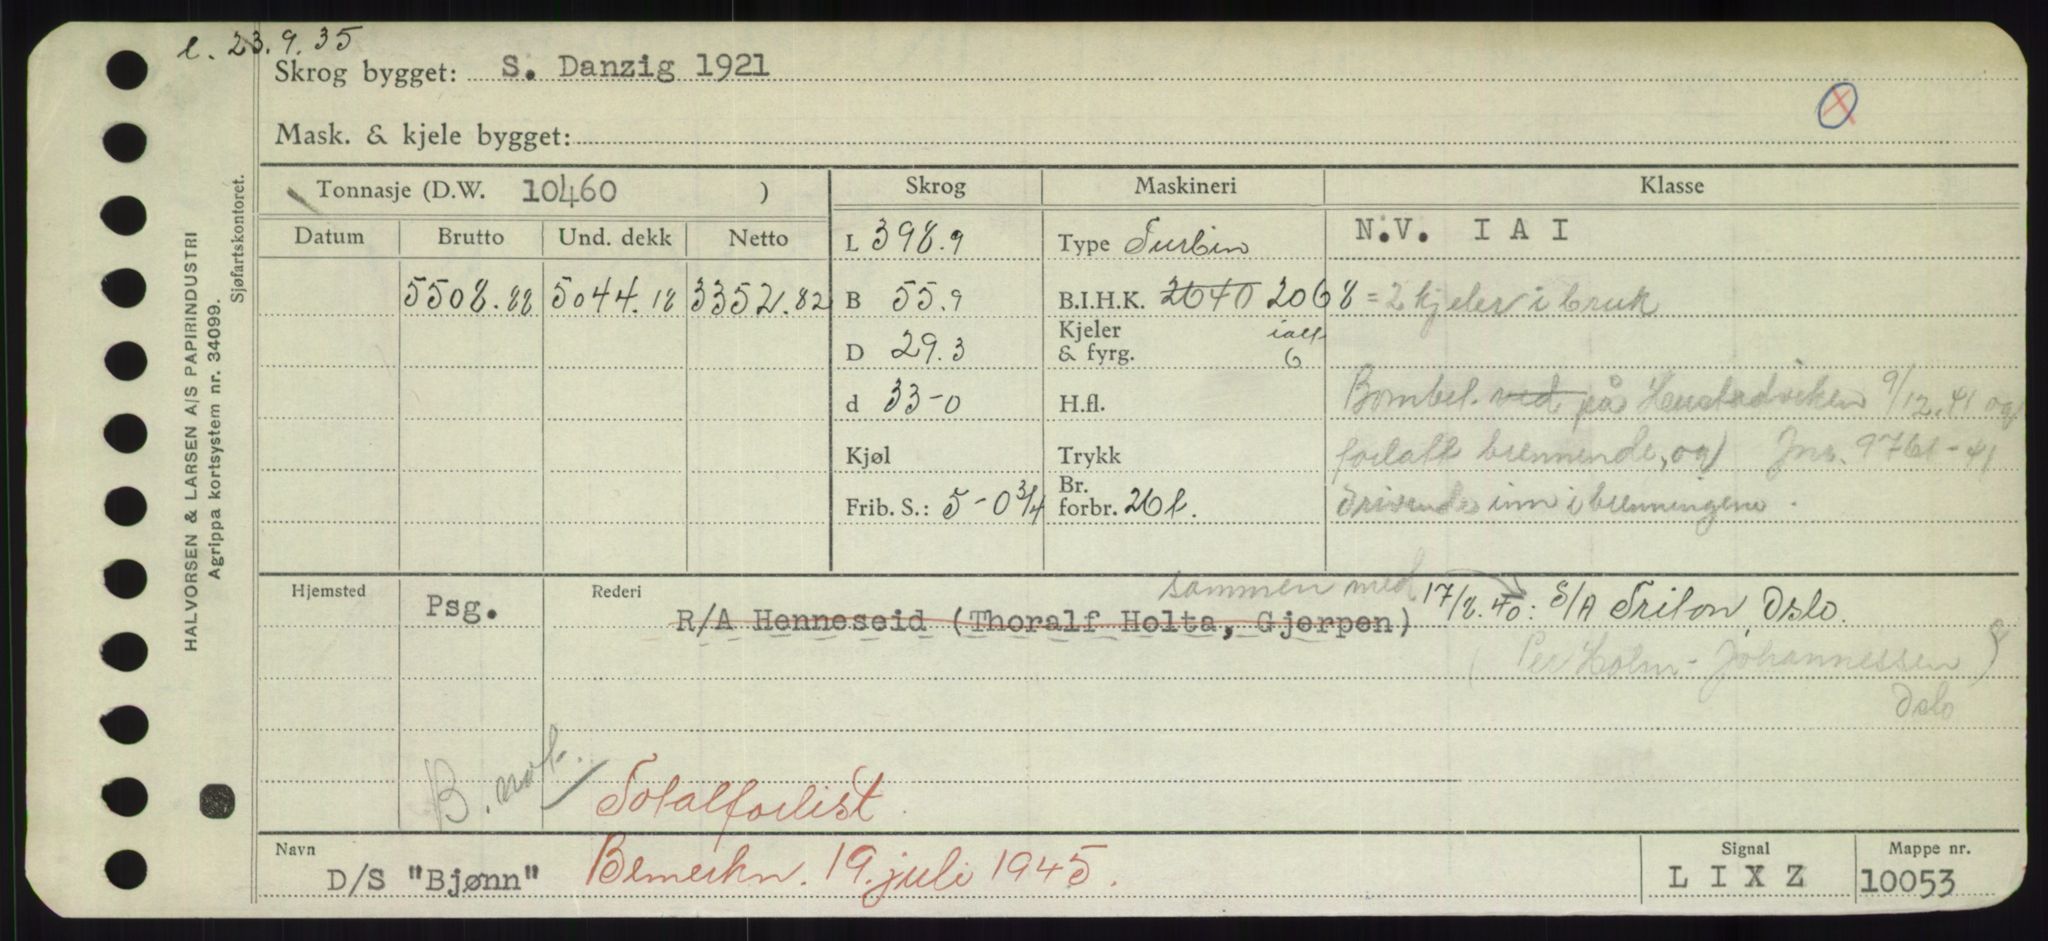 l. 23.9.35
Skrog bygget: S. Danzig 1921
Mask. & kjele bygget:
HALVORSEN & LARSEN A/S PAPIRINDUSTRI
Agrippa kortsystem nr. 34099.
Sjøfartskontoret.
Tonnasje (D.W. 10460 )
Skrog
Maskineri
Klasse
Datum Brutto Und. dekk Netto
5508.88 5044.18 3352.82
L 398.9
B 55.9
D 29.3
d 33-0
Kjøl
Frib. S.: 5-0 3/4
Type Turbin
B.I.H.K. 2640 2068 = 2 kjeler i bruk
Kjeler ialt
& fyrg. 6
H.fl.
Trykk
Br.
forbr. 26 t.
N.V. I A I
Bombet ved på Hustadviken 9/12.41 og
forlatt brennende, og Jnr. 9761-41
drivende inn i brenningene.
Hjemsted
Psg.
Rederi
sammen med
R/A Henneseid (Thoralf Holta, Gjerpen) 17/8.40: S/A Triton, Oslo.
(Per Holm-Johannessen)
Oslo
B. not.
Totalforlist.
Navn
D/S "Bjønn"
Bemerkn. 19. juli 1945.
Signal
L I X Z
Mappe nr.
10053